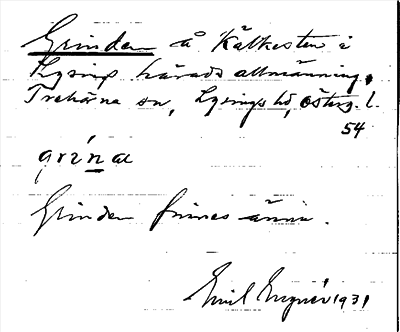 Grinden å Kälkesten i
Lysings härads allmänning,
Trehörna sn, Lysings hd, Österg. l.
54
grína
Grinden finnes ännu.
Emil Engnér 1931